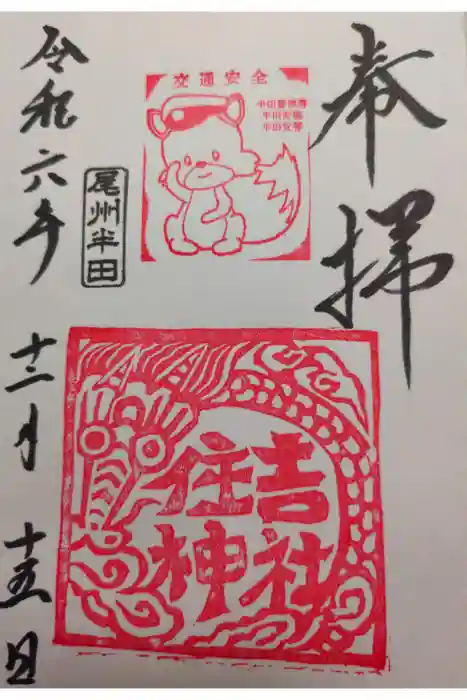 奉拝
交通安全
半田警察署
半田安協
住吉神社
尾州半田
令和六年
十二月
十五日